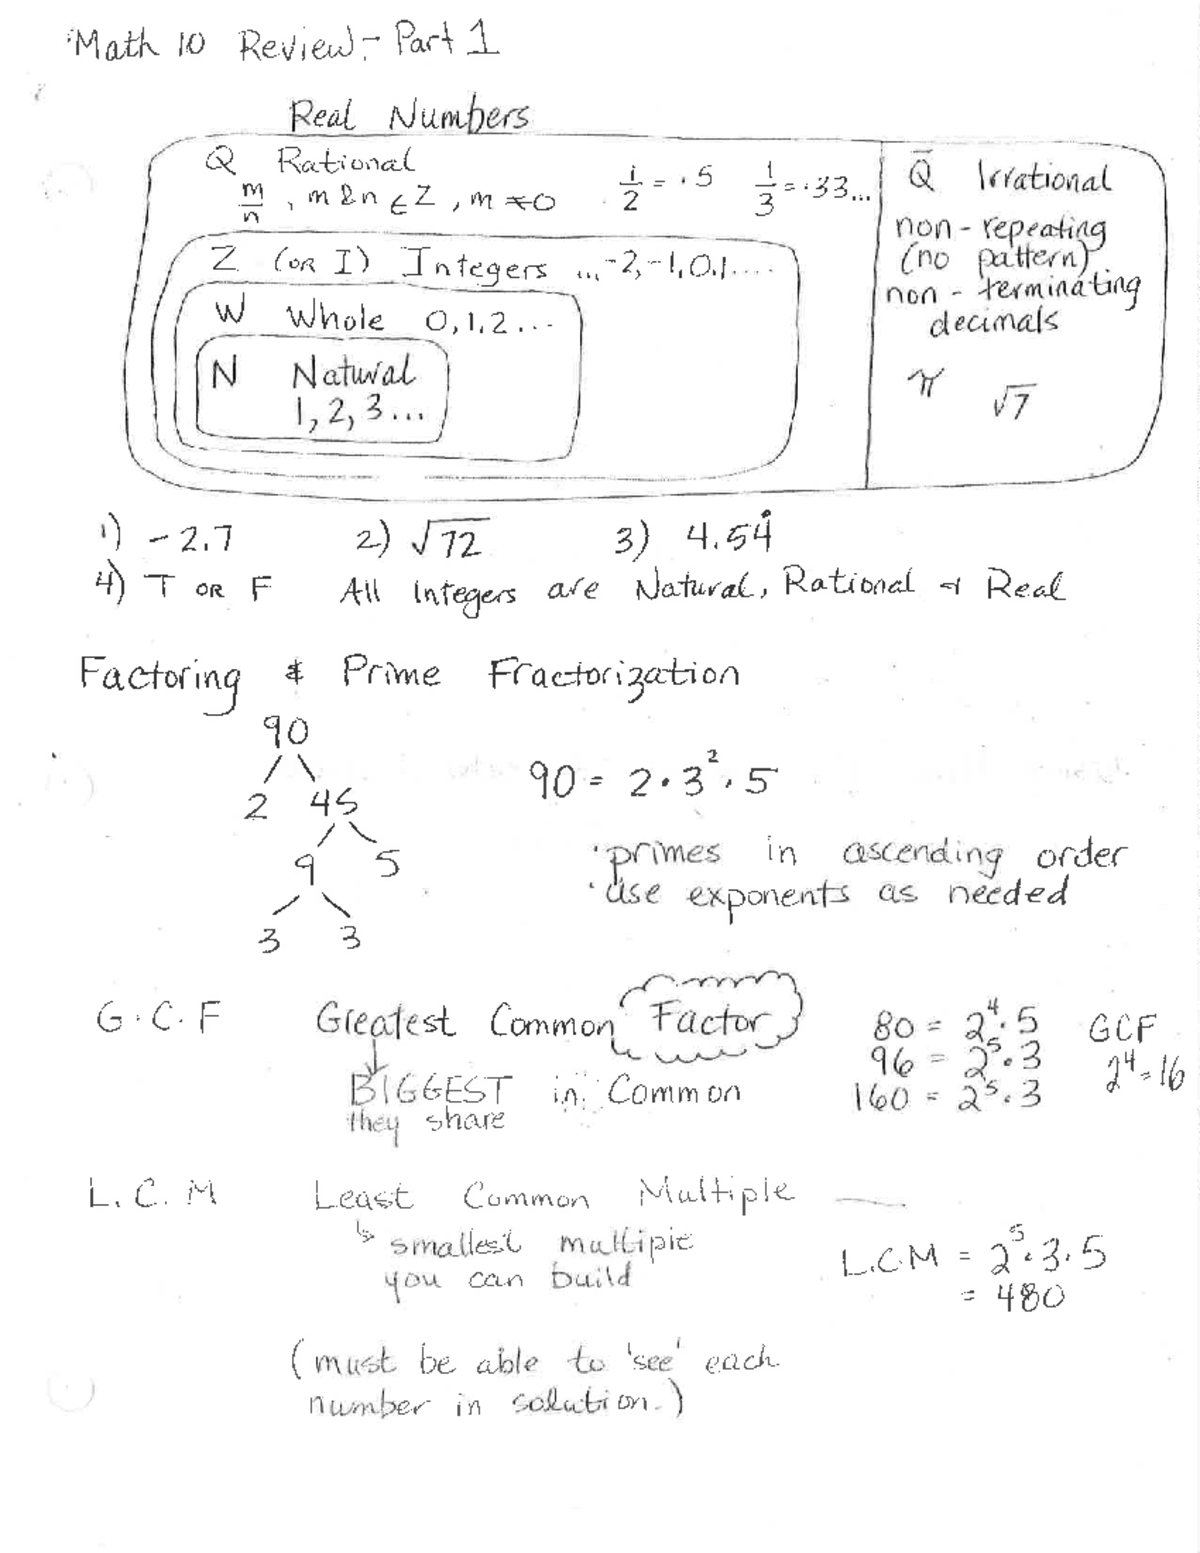 Math 10 Review - Part 1
Real Numbers
Q Rational
m/n, m & n ∈ Z, m ≠ 0
1/2 = .5 1/3 = .33...
Z (OR I) Integers ...-2,-1,0,1....
W Whole 0,1,2...
N Natural
1,2,3...
Q̄ Irrational
non-repeating
(no pattern)
non-terminating
decimals
π √7
1) -2.7 2) √72 3) 4.54̇
4) T OR F All Integers are Natural, Rational & Real
Factoring & Prime Fractorization
90
2 45
9 5
3 3
90 = 2·3²·5
·primes in ascending order
·use exponents as needed
G.C.F Greatest Common Factor
BIGGEST in Common
they share
80 = 2⁴·5 GCF
96 = 2⁵·3 2⁴=16
160 = 2⁵·3
L.C.M Least Common Multiple
↳ smallest multiple
you can build
L.C.M = 2⁵·3·5
= 480
(must be able to 'see' each
number in solution.)